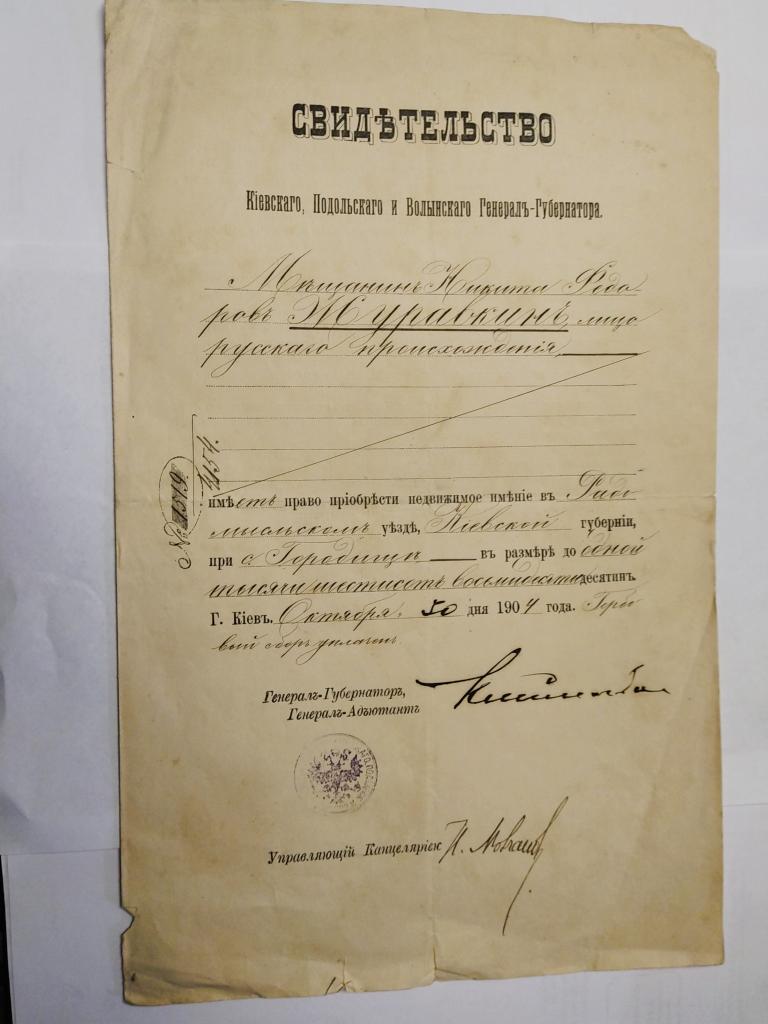 СВИДѢТЕЛЬСТВО
Кіевскаго, Подольскаго и Волынскаго Генералъ-Губернатора.
Мѣщанинъ Никита Ѳедо
ровъ Журавкинъ, лицо
русскаго происхожденія
имѣетъ право пріобрѣсти недвижимое имѣніе въ Радо
мысльскомъ уѣздѣ, Кіевской губерніи,
при с. Городищѣ въ размѣрѣ до одной
тысячи шестисотъ восьмидесяти десятинъ.
Г. Кіевъ. Октября 30 дня 1904 года. Гербо
вый сборъ уплаченъ.
№ 1519
4154.
Генералъ-Губернаторъ,
Генералъ-Адъютантъ
Управляющій Канцеляріею